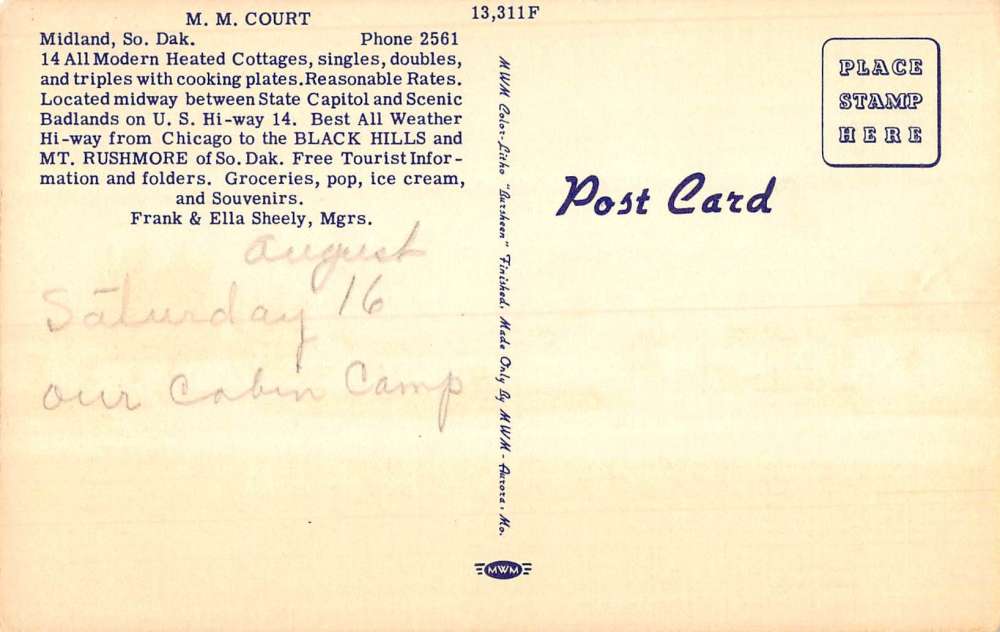 M. M. COURT
Midland, So. Dak. Phone 2561
14 All Modern Heated Cottages, singles, doubles,
and triples with cooking plates. Reasonable Rates.
Located midway between State Capitol and Scenic
Badlands on U. S. Hi-way 14. Best All Weather
Hi-way from Chicago to the BLACK HILLS and
MT. RUSHMORE of So. Dak. Free Tourist Infor-
mation and folders. Groceries, pop, ice cream,
and Souvenirs.
Frank & Ella Sheely, Mgrs.
august
Saturday 16
our Cabin Camp
13,311F
MWM Color-Litho "Aursheen" Finished. Made Only By MWM - Aurora, Mo.
MWM
PLACE
STAMP
HERE
Post Card